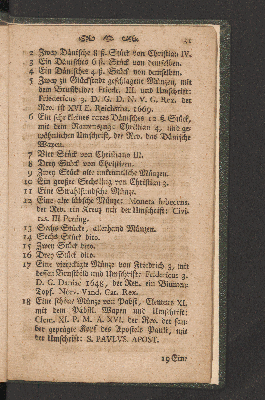 41
2 Zwey Dänische 8 ß. Stück von Christian IV.
3 Ein Dänisches 6 ß. Stück von demselben.
4 Ein Dänisches 4 ß. Stück von demselben.
5 Zwey zu Glückstadt geschlagene Münzen, mit
dem Brustbilde: Fried. III. und Umschrift:
Friedericus 3. D. G. D. N. V. G. Rex. der
Rev. ist XVI E. Reichsthlr. 1669.
6 Ein sehr kleines rares Dänisches 12 ß Stück,
mit dem Namenszug: Christian 4. und ge-
wöhnlichen Umschrift, der Rev. das Dänische
Wapen.
7 Vier Stück von Christiano III.
8 Drey Stück von Christian.
9 Zwey Stück alte unkenntliche Münzen.
10 Ein großer Sechsling von Christian 3.
11 Eine Stralsundische Münze.
12 Eine alte Lübsche Münze: Moneta
der Rev. ein Kreuz mit der Umschrift: Civi-
tas
13 Sechs Stücke, allerhand Münzen.
14 Sechs Stück dito.
15 Zwey Stück dito.
16 Drey Stück dito.
17 Eine viereckigte Münze von Friedrich 3, mit
dessen Brustbild und Umschrift: Fridericus 3.
D. G. Daniae 1648, der Rev. ein Blumen-
Topf. Norv. Vand. Got. Rex.
18 Eine schöne Münze von Pabst, Clemens XI.
mit dem Päbstl. Wapen und Umschrift:
Clem. XI. P. M. A. XVI. der Rev. der sau-
ber geprägte Kopf des Apostels Pauli, mit
der Umschrift: S. PAVLVS APOST.
19 Eine